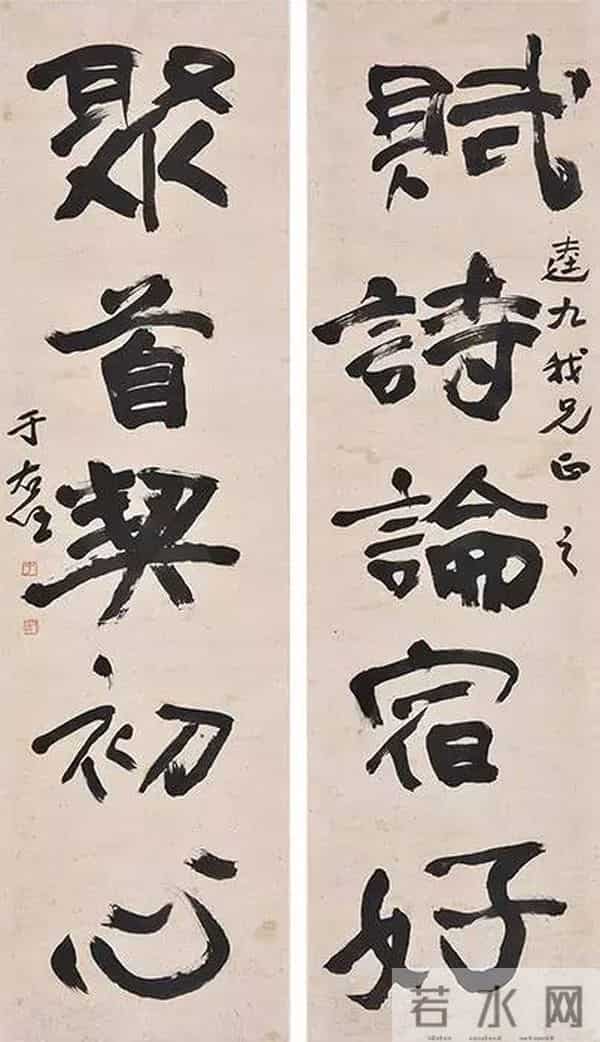 賦詩論宿好
逵九我兄正之
聚首契初心
于右任
若水网